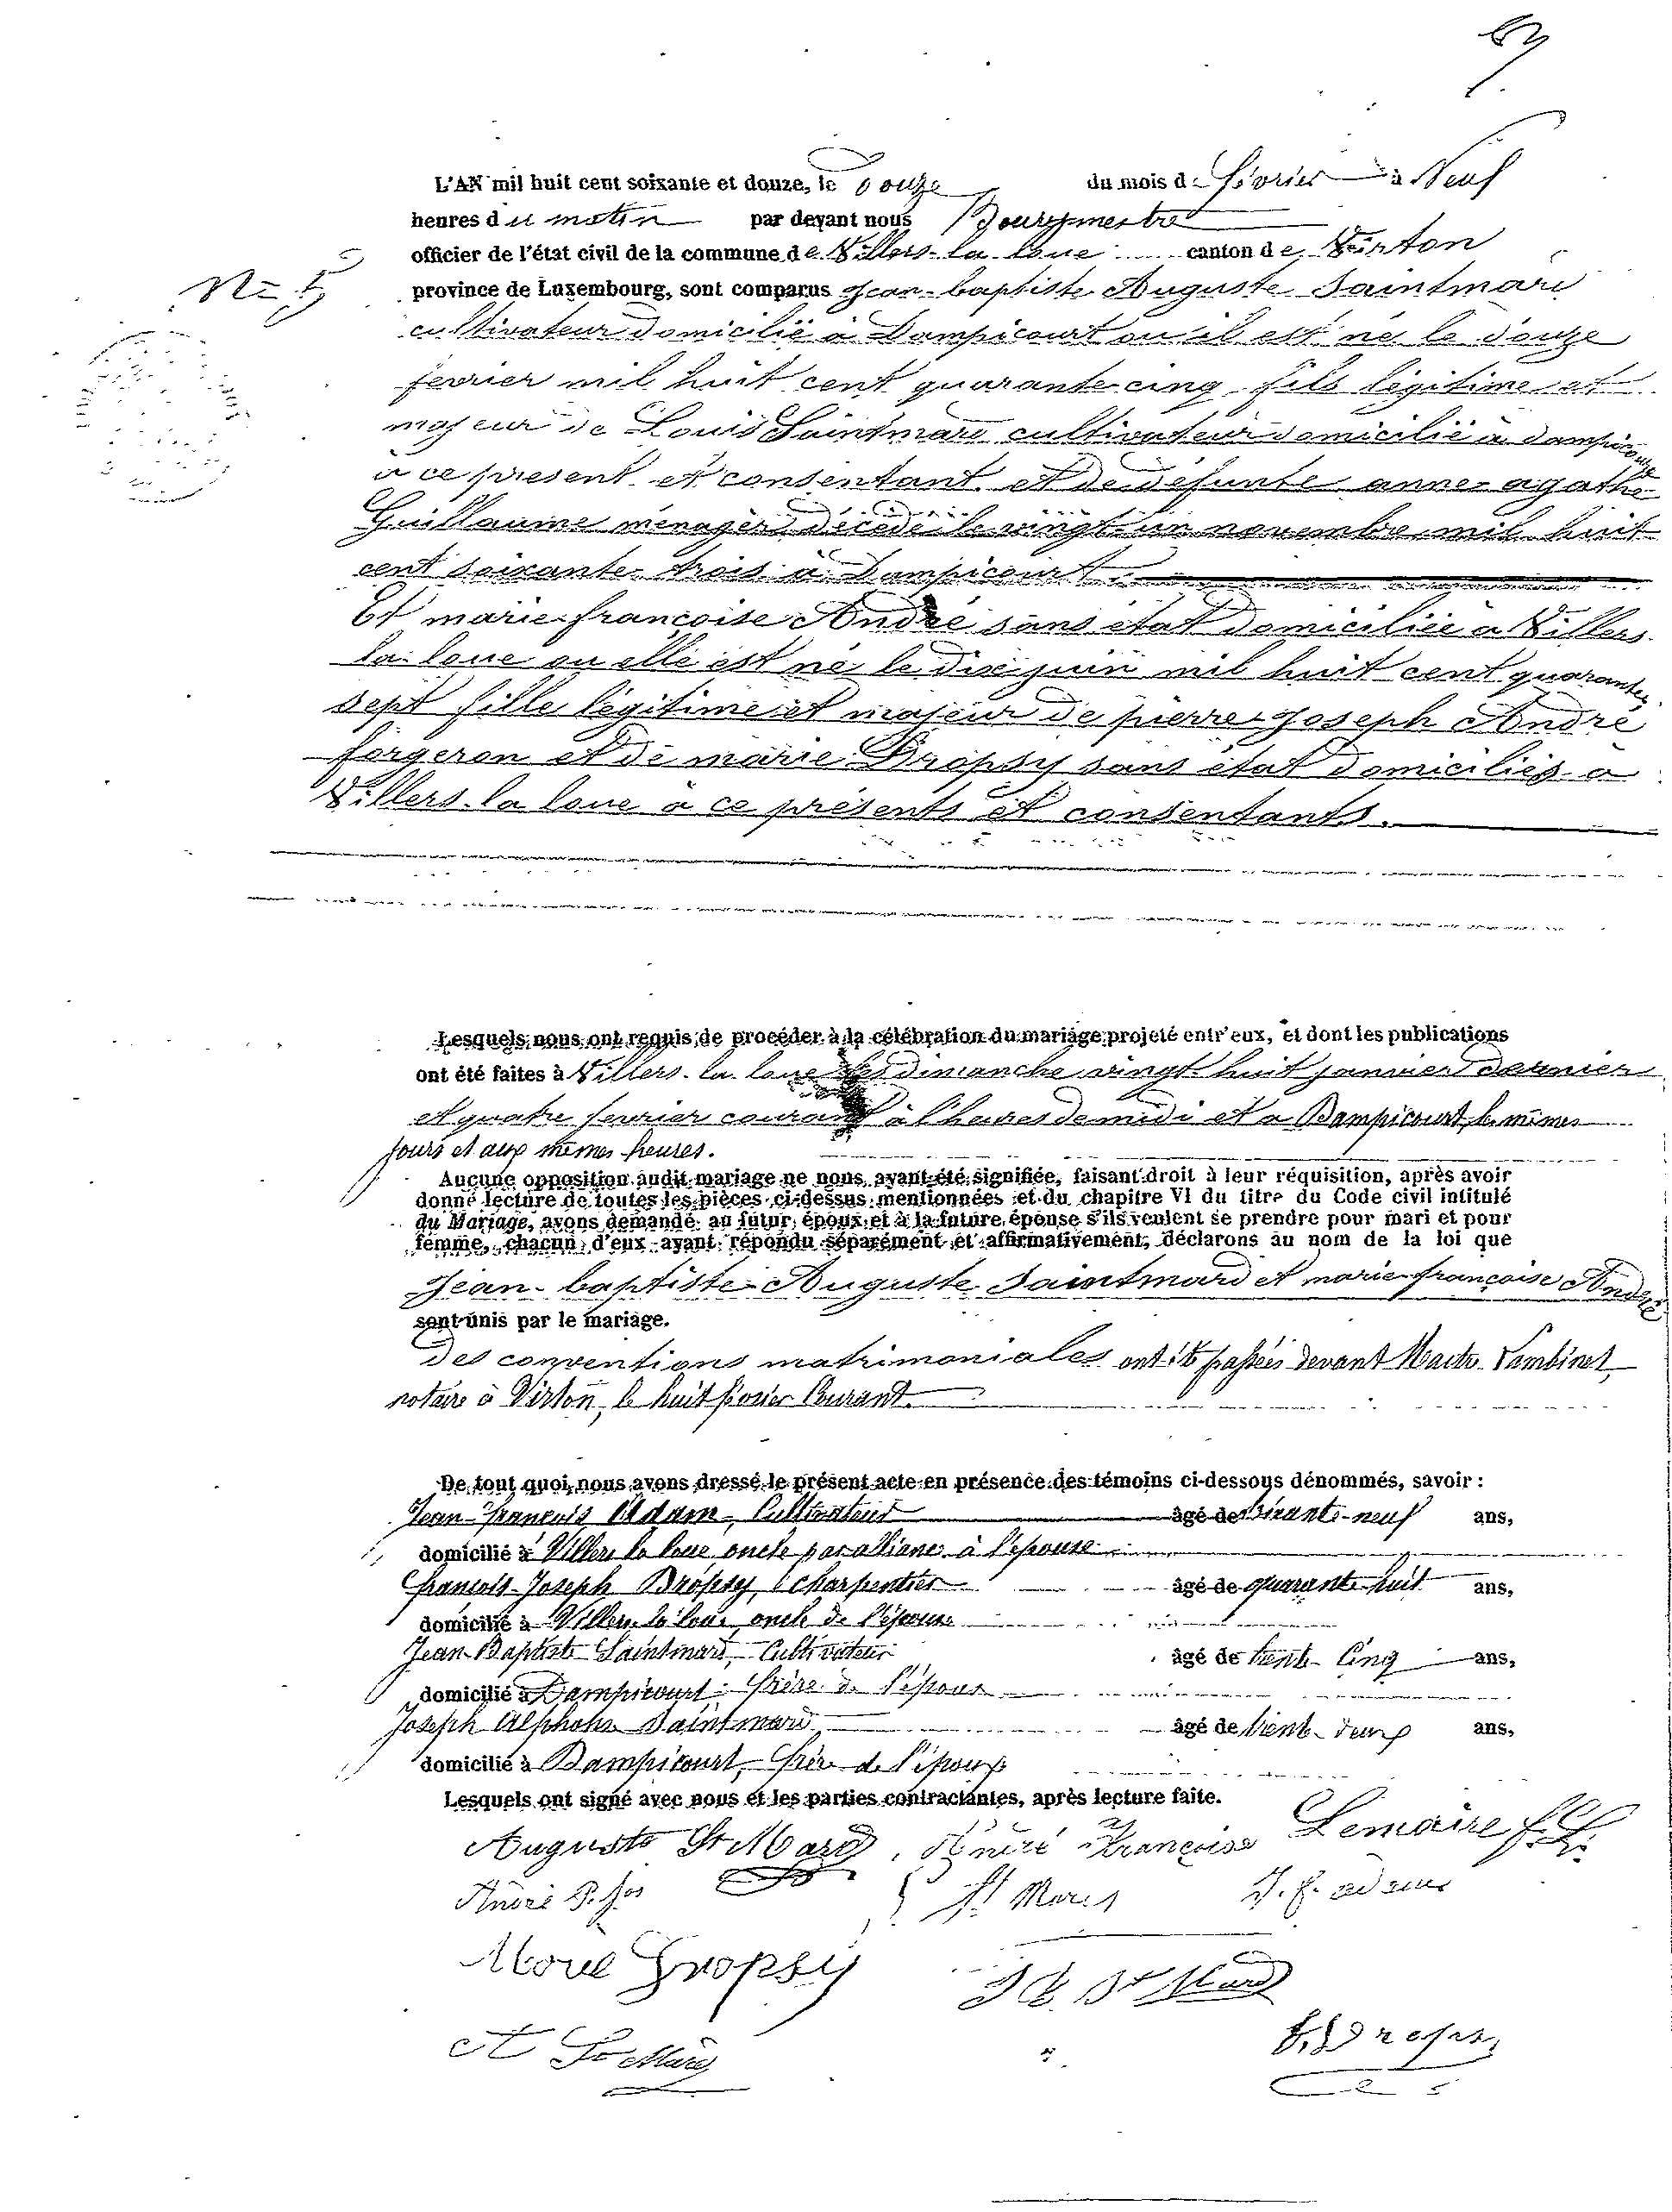 L'AN mil huit cent soixante et douze, le Douze du mois de février à Neuf
heures du matin par devant nous Bourgmestre
officier de l'état civil de la commune de Villers-la-loue canton de Virton
N= 5
province de Luxembourg, sont comparus Jean-baptiste Auguste Saintmard
cultivateur domicilié à Dampicourt ou il est né le douze
fevrier mil huit cent quarante cinq fils légitime et
majeur de Louis Saintmard cultivateur domicilié à dampicourt
à ce present et consentant et de défunte anne-agathe
Guillaume ménagère décédé le vingt un novembre mil huit
cent soixante trois à Dampicourt.
Et marie-françoise André sans état domiciliée à Villers
la loue ou elle est né le dix juin mil huit cent quarante
sept fille légitime et majeur de pierre-Joseph André
forgeron et de marie Dropsy sans état domiciliés à
Villers-la loue à ce présents et consentants.
Lesquels nous ont requis de procéder à la célébration du mariage projeté entr'eux, et dont les publications
ont été faites à Villers-la loue les dimanche vingt huit janvier dernier
et quatre fevrier courant à l'heures de midi et a Dampicourt, les mêmes
jours et aux mêmes heures.
Aucune opposition audit mariage ne nous ayant été signifiée, faisant droit à leur réquisition, après avoir
donné lecture de toutes les pièces ci-dessus mentionnées et du chapitre VI du titre du Code civil intitulé
du Mariage, avons demandé au futur époux et à la future épouse s'ils veulent se prendre pour mari et pour
femme, chacun d'eux ayant répondu séparément et affirmativement, déclarons au nom de la loi que
Jean-baptiste-Auguste Saintmard et marie-françoise André
sont unis par le mariage.
Des conventions matrimoniales ont été passées devant Maitre Tambinet,
notaire à Virton, le huit février Courant.
De tout quoi, nous avons dressé le présent acte en présence des témoins ci-dessous dénommés, savoir :
Jean-François Adam, Cultivateur âgé de soixante-neuf ans,
domicilié à Villers la loue oncle par alliance à l'épouse
François-Joseph Dropsy, charpentier âgé de quarante huit ans,
domicilié à Villers la loue, oncle de l'épouse
Jean-Baptiste Saintmard, Cultivateur âgé de trente-Cinq ans,
domicilié à Dampicourt, frère de l'époux
Joseph Alphonse Saintmard âgé de trente-deux ans,
domicilié à Dampicourt, frère de l'époux
Lesquels ont signé avec nous et les parties contractantes, après lecture faite.
Auguste St Mard, André Françoise Lemaire
André P. Jos St Mard J. F. adam
Dropsy
J B St Mard
A St Mard
F. J Dropsy